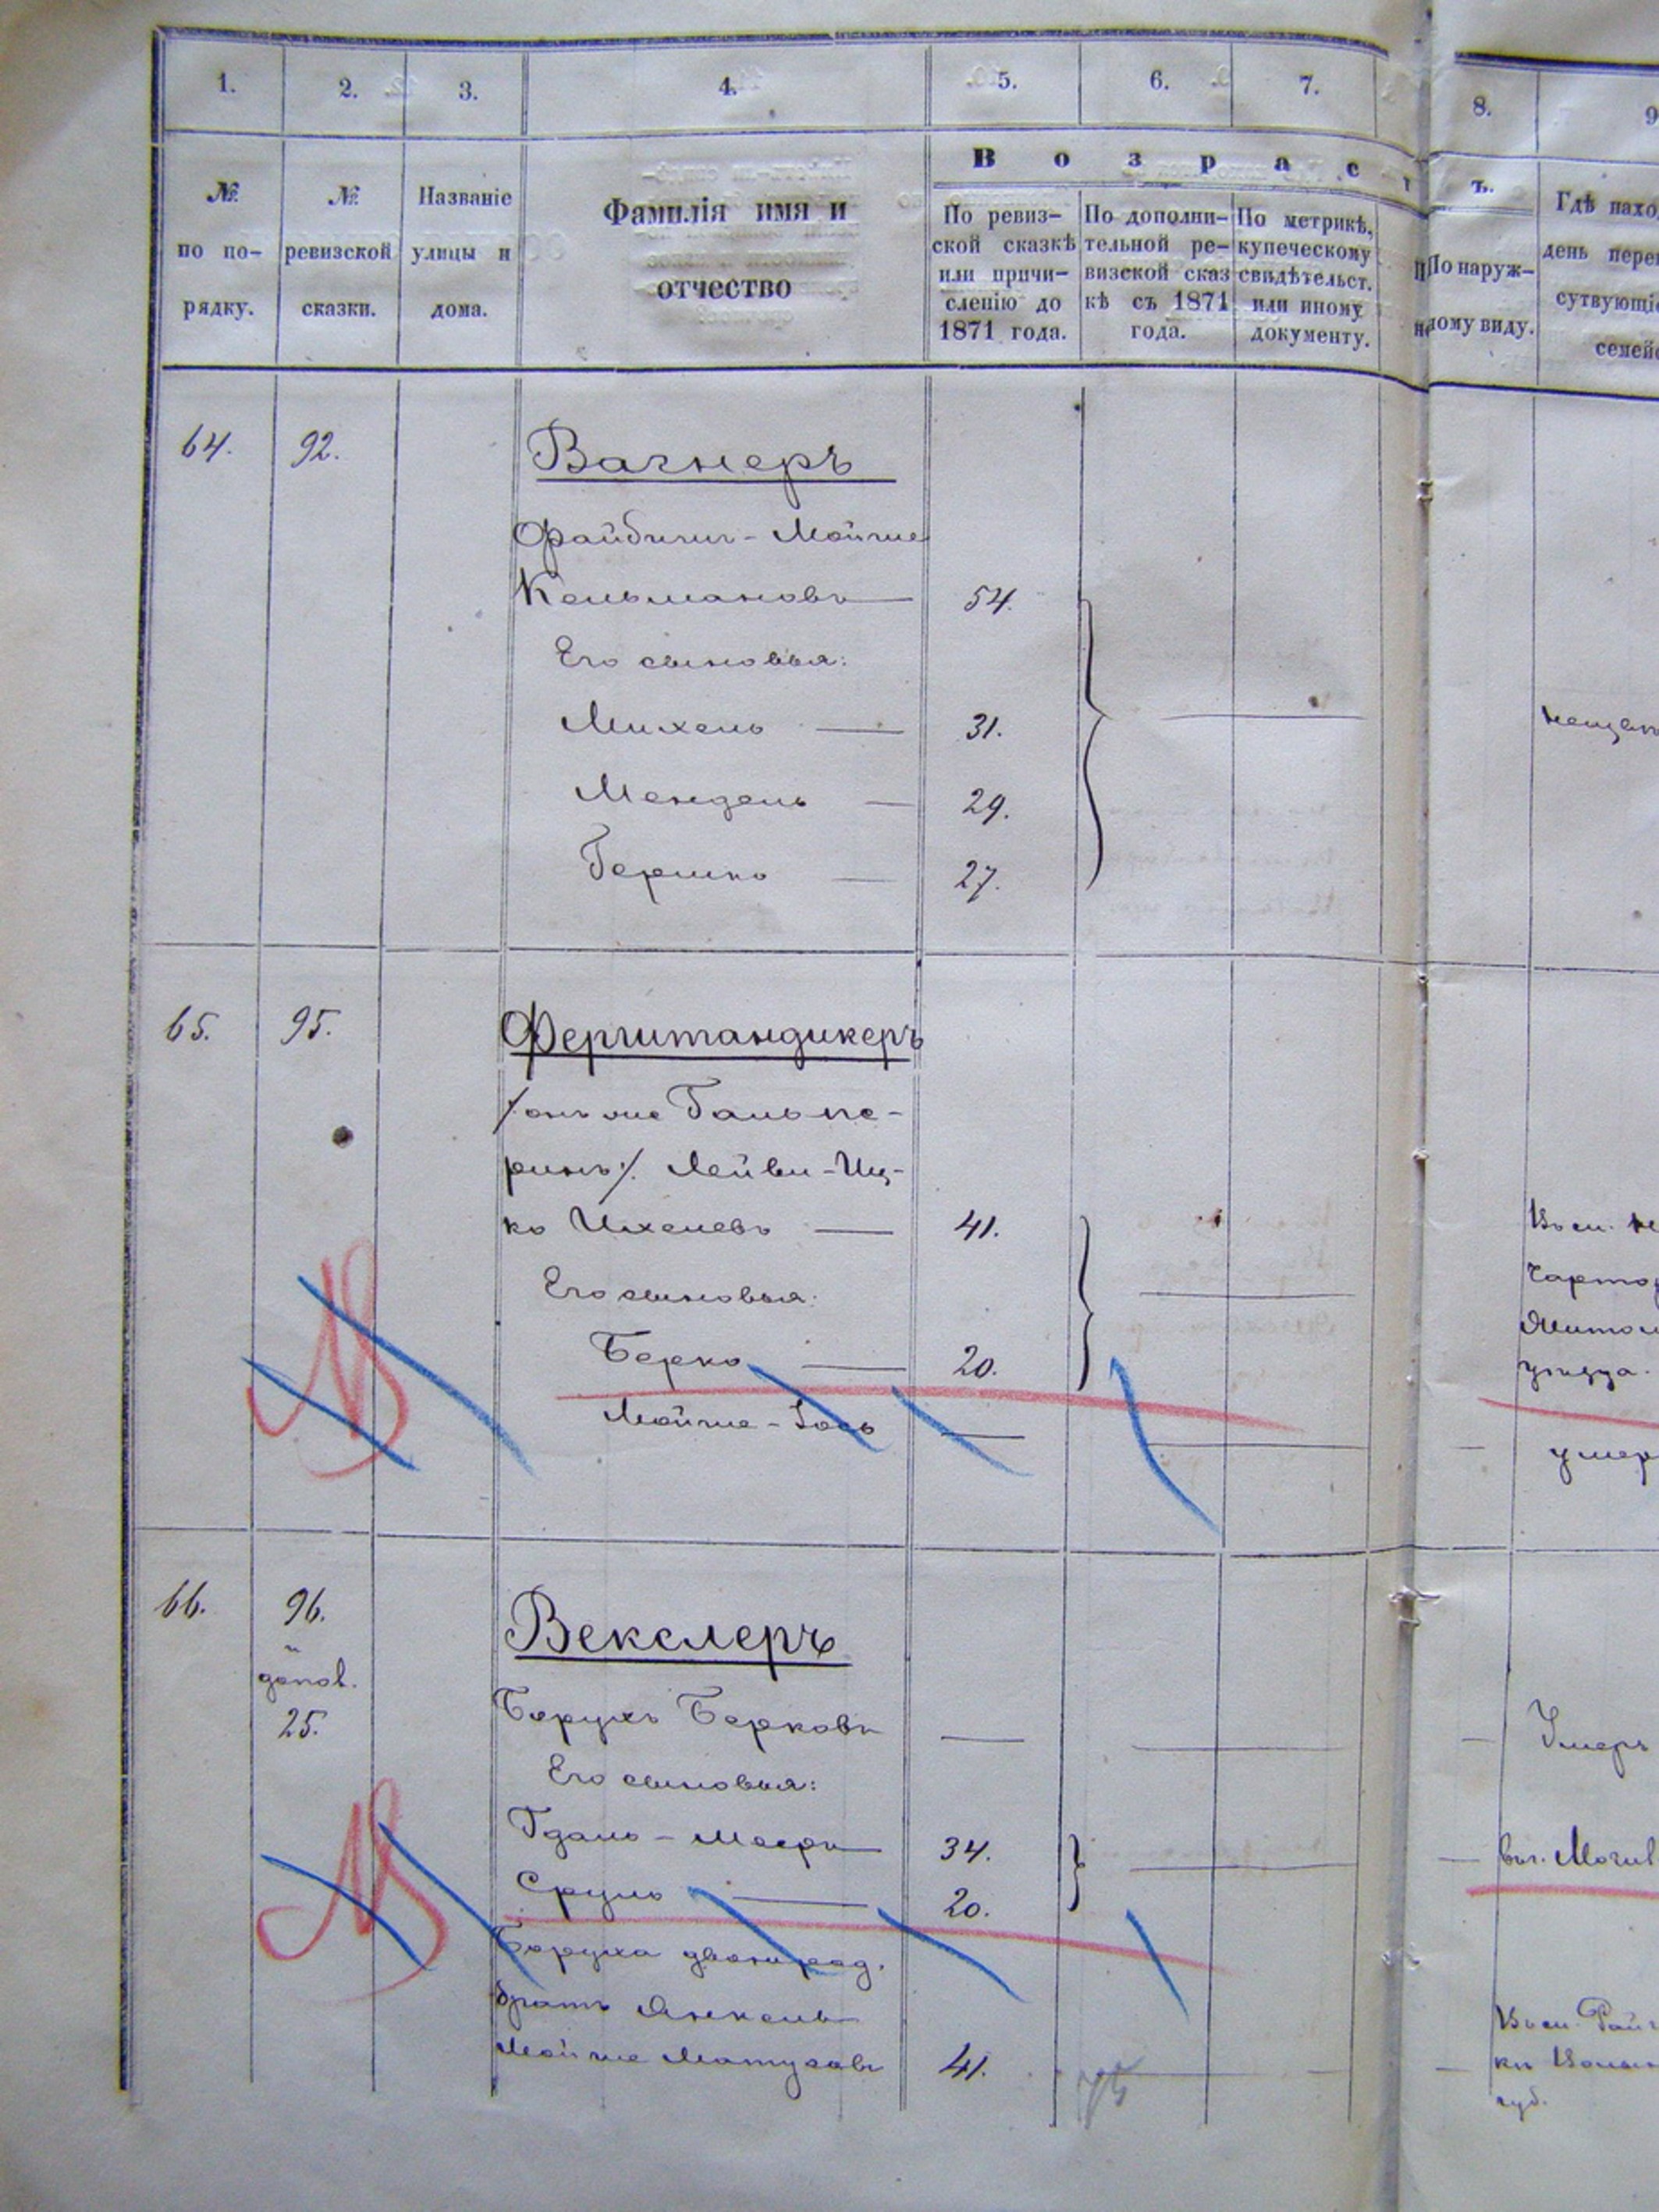 1. 2. 3. 4. 5. 6. 7. 8. 9
№ по по-рядку.
№ ревизской сказки.
Названіе улицы и дома.
Фамилія имя и отчество
Возраст
ъ.
По ревиз-
ской сказкѣ
или причи-
сленію до
1871 года.
По дополни-
тельной ре-
визской сказ
кѣ съ 1871
года.
По метрикѣ,
купеческому
свидѣтельст.
или иному
документу.
По наруж-
ному виду.
Гдѣ нахо
день пере
сутвующіе
семей
64. 92. Вагнеръ
Файбишъ-Мойше
Кельмановъ 54.
Его сыновья:
Михель 31.
Мендель 29.
Гершко 27.
65. 95. Ферштандикеръ
/:онъ же Гальпе-
ринъ:/. Лейви-Иц-
ко Ихелевъ 41.
Его сыновья:
Берко 20.
Мойше-Іось
умер
66. 96. Векслеръ
и
допол.
25.
Борухъ Берковъ
Умеръ
Его сыновья:
Гдаль-Мееръ 34.
Сруль 20.
Боруха двоюрод.
братъ Янкель
Мойше Матусовъ 41.
губ.